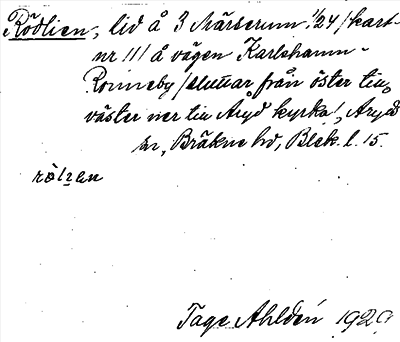 Rödlien, lid å 3 Märserum 1/24 /kart-
nr 11/ å vägen Karlshamn -
Ronneby /sluttar från öster till
väster ner till Åryd kyrka/, Åryd
sn, Bräkne hd, Blek. l. 15.
Tage Ahldén 1929